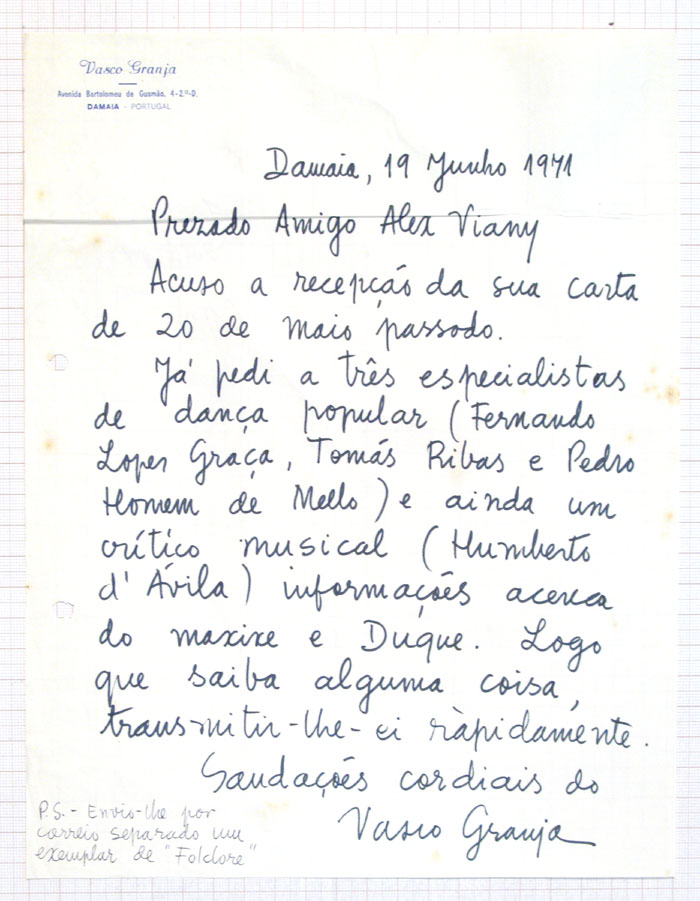 Vasco Granja
Avenida Bartolomeu de Gusmão, 4-2.º-D.
DAMAIA - PORTUGAL
Damaia, 19 Junho 1971
Prezado Amigo Alex Viany
Acuso a recepção da sua carta
de 20 de maio passado.
Já pedi a três especialistas
de dança popular (Fernando
Lopes Graça, Tomás Ribas e Pedro
Homem de Mello) e ainda um
crítico musical (Humberto
d'Ávila) informações acerca
do maxixe e Duque. Logo
que saiba alguma coisa,
transmitir-lhe-ei ràpidamente.
Saudações cordiais do
Vasco Granja
P.S.- Envio-lhe por
correio separado um
exemplar de "Folclore"